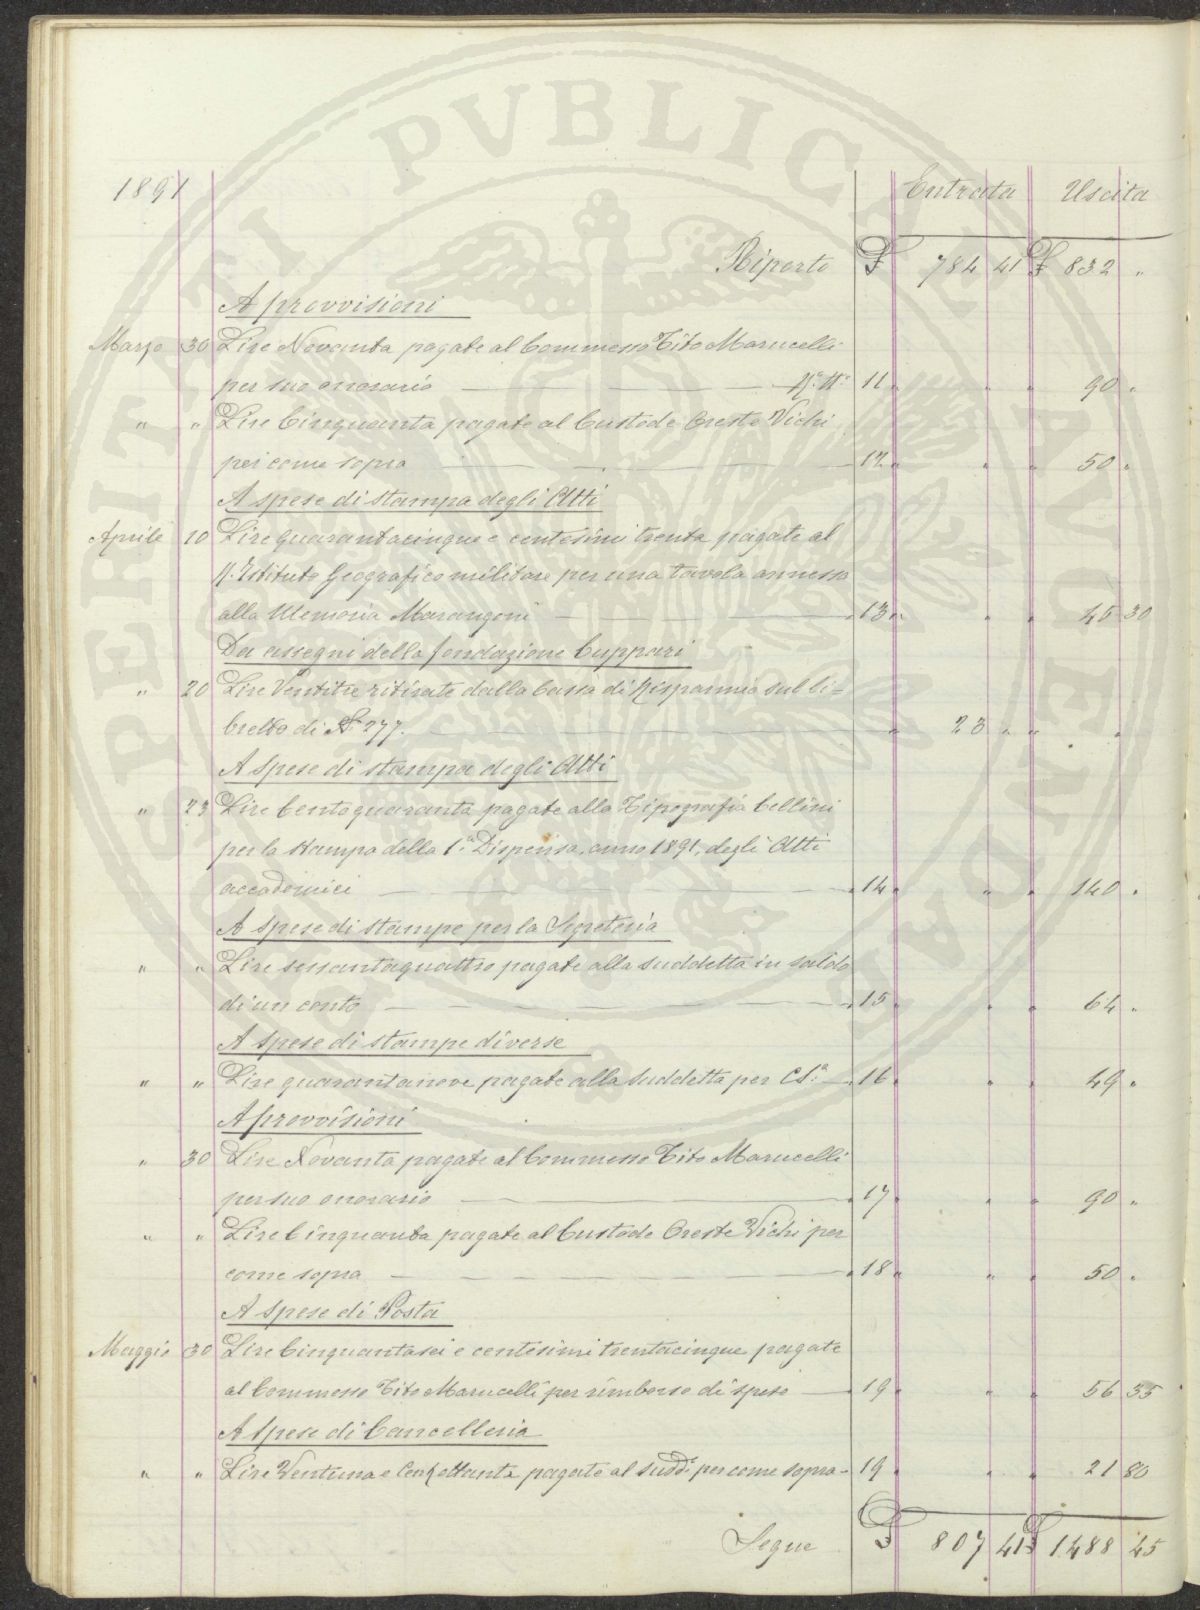 PROSPERITATI PVBLICAE AVGENDAE
1891 Entrata Uscita
Riporto £ 784 41 £ 832 "
A provvisioni
Marzo 30 Lire Novanta pagate al Commesso Tito Marucelli
per suo onorario — 11 " " " 90 "
" " Lire Cinquanta pagate al Custode Oreste Vichi
per come sopra — 12 " " " 50 "
A spese di stampa degli Atti
Aprile 10 Lire quarantacinque e centesimi trenta pagate al
R. Istituto Geografico militare per una tavola annessa
alla Memoria Marangoni — 13 " " " 45 30
Da assegni della fondazione Cuppari
" 20 Lire Ventitre ritirate dalla Cassa di Risparmio sul li-
bretto di N° 277. — " 23 " " " "
A spese di stampa degli Atti
" 23 Lire Centoquaranta pagate alla Tipografia Cellini
per la stampa della 1.a Dispensa, anno 1891, degli Atti
accademici — " 14 " " " 140 "
A spese di stampe per la Segreteria
" " Lire sessantaquattro pagate alla suddetta in saldo
di un conto — " 15 " " " 64 "
A spese di stampe diverse
" " Lire quarantanove pagate alla suddetta per Cs.a — " 16 " " " 49 "
A provvisioni
" 30 Lire Novanta pagate al Commesso Tito Marucelli
per suo onorario — " 17 " " " 90 "
" " Lire Cinquanta pagate al Custode Oreste Vichi per
come sopra — " 18 " " " 50 "
A spese di Posta
Maggio 30 Lire Cinquantasei e centesimi trentacinque pagate
al Commesso Tito Marucelli per rimborso di spese — " 19 " " " 56 35
A spese di Cancelleria
" " Lire Ventuna e Cent ottanta pagate al sudd.° per come sopra — 19 " " " 21 80
Segue £ 807 41 £ 1488 45